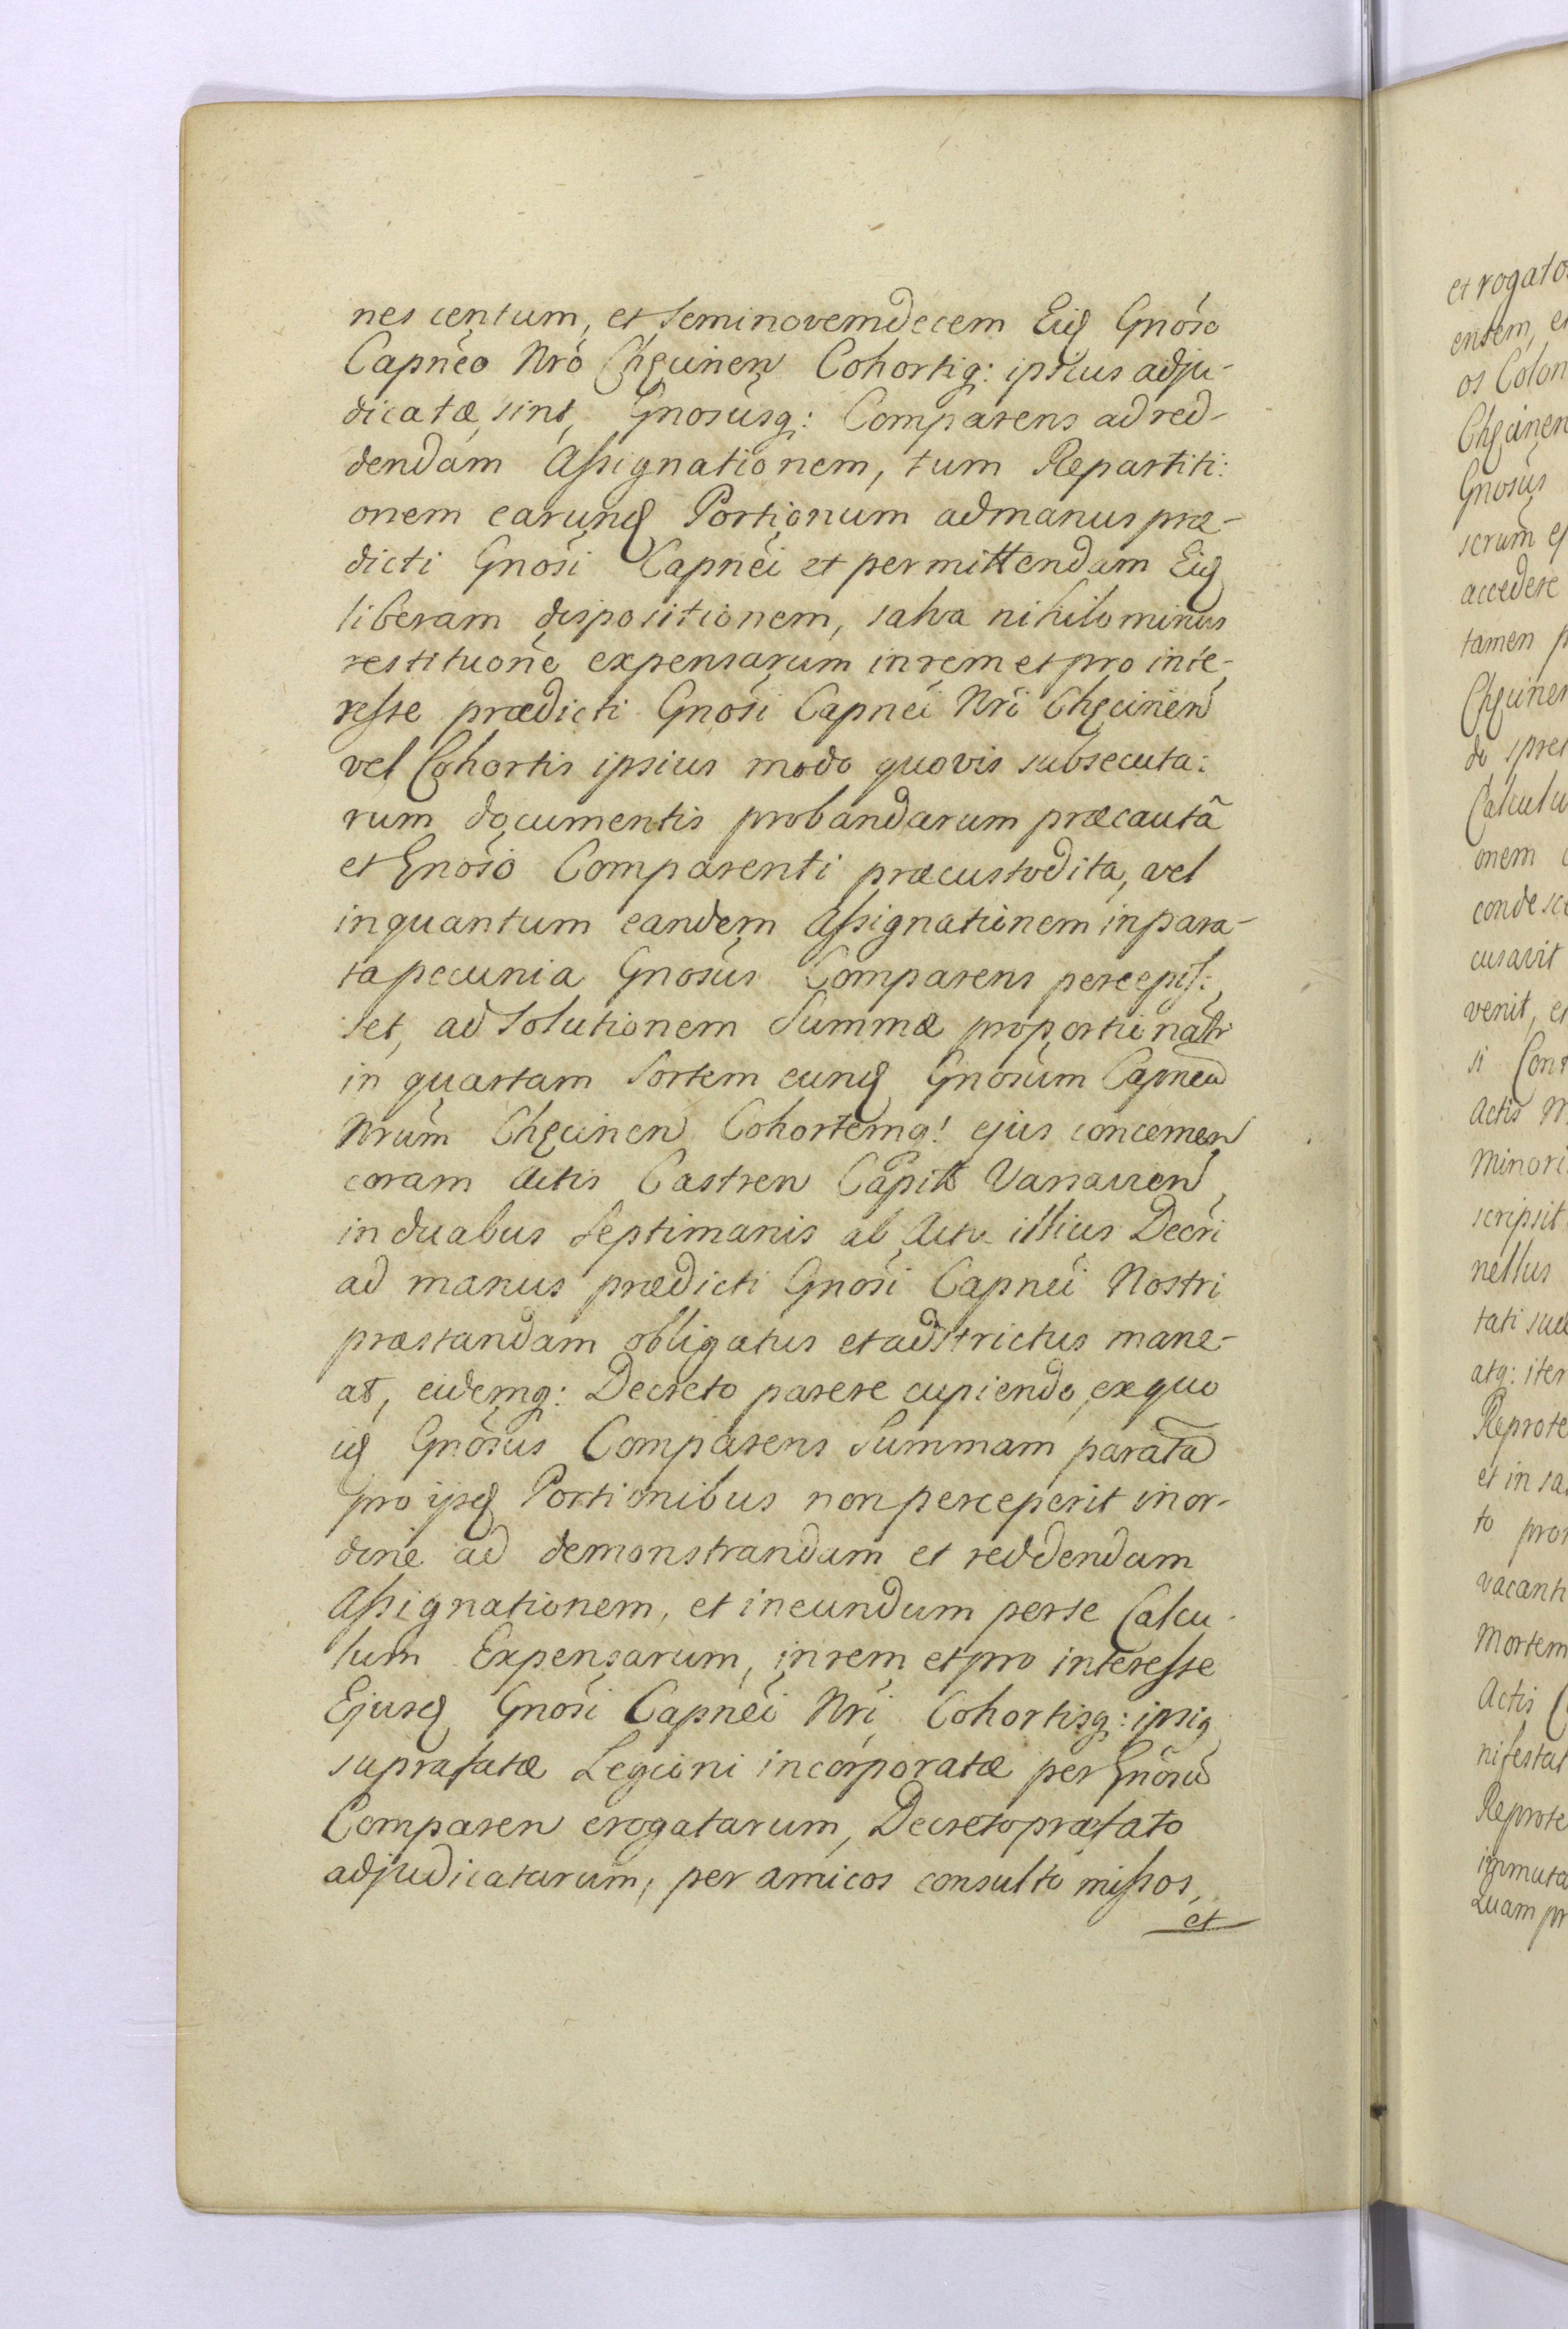 nes centum, et seminovemdecem Eid Gnoso
Capneo Nro Chęcinen Cohortiq: ipsius adju-
dicatæ sint, Gnosusq: Comparens ad red-
dendam Assignationem, tum Repartiti:
onem earund Portionum ad manus præ-
dicti Gnosi Capnei et permittendam Eid
liberam dispositionem, salva nihilominus
restituone expensarum in rem et pro inte-
resse prædicti Gnosi Capnei Nri Chęcinen
vel Cohortis ipsius modo quovis subsecuta:
rum documentis probandarum præcautã
et Gnoso Comparenti præcustodita, vel
inquantum eandem Assignationem in para-
ta pecunia Gnosus Comparens percepis:
set, ad solutionem Summæ proportionatr
in quartam Sortem eund Gnosum Capneũ
Nrum Chęcinen Cohortemq: ejus concernen
coram Actis Castren Capitl Varsavien,
in duabus Septimanis ab Actu illius Decri
ad manus prædicti Gnosi Capnei Nostri
præstandam obligatus et adstrictus mane-
at, eidemq: Decreto parere cupiendo, ex quo
id Gnosus Comparens Summam paratã
pro ijsd Portionibus non perceperit in or-
dine ad demonstrandam et reddendam
Assignationem, et ineundum per se Calcu-
lum Expensarum, in rem et pro interesse
Ejusd Gnosi Capnei Nri Cohortisq: ipsig
suprafatæ Legioni incorporatæ per Gnosũ
Comparen erogatarum, Decreto præfato
adjudicatarum, per amicos consulto missos,
et
et rogato
ensem, e
os Colon
Chęcinen
Gnosus
serum ej
accedere
tamen p
Chęcinen
do spre
Calculu
onem c
condesce
cusavit
venit, et
si Con
Actis
Minori
scripsit
nellus
tati suæ
atq: iter
Reprote
et in sa
to pro
vacanti
Mortem
Actis C
nifestat
Reprote
immuta
Quam pr